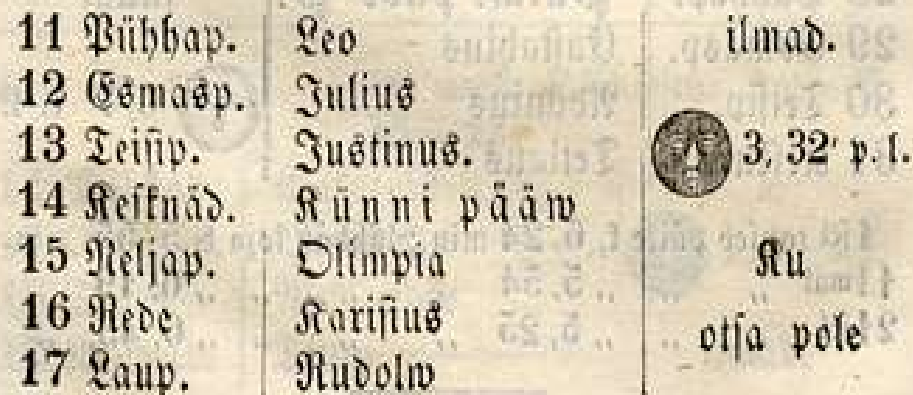 11 Pühhap. Leo ilmad.
12 Esmasp. Julius
13 Teisip. Justinus. 3, 32' p. l.
14 Kesknäd. Künni pääw
15 Neljap. Olimpia Ku
16 Rede Karisius otsa pole
17 Laup. Rudolw